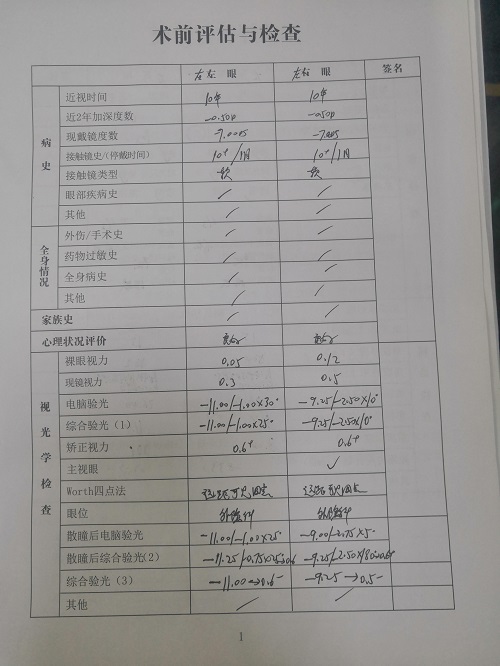 术前评估与检查
右左 眼 左右 眼 签名
病史
近视时间 10年 10年
近2年加深度数 -0.50D -0.50D
现戴镜度数 -7.00DS
接触镜史/(停戴时间) 10+/1月 10+/1月
接触镜类型 软 软
眼部疾病史 / /
其他 / /
全身情况
外伤/手术史 / /
药物过敏史 / /
全身病史 / /
其他 / /
家族史 / /
心理状况评价
视光学检查
裸眼视力 0.05 0.12
现镜视力 0.3 0.5
电脑验光 -11.00/-1.00×30° -9.25/-2.50×10°
综合验光(1) -11.00/-1.00×25° -9.25/-2.50×10°
矫正视力 0.6+ 0.6+
主视眼 ✓
Worth四点法
眼位
散瞳后电脑验光 -11.00/-1.00×25 -9.00/-2.75×5°
散瞳后综合验光(2) -11.25/-0.75×25→0.6 -9.25/-2.50/
综合验光(3) -11.00→0.6- -9.25→0.5-
其他 / /
1